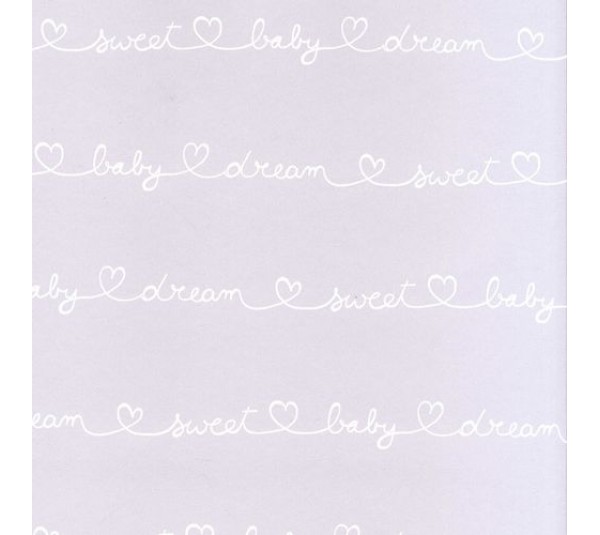 sweet baby dream
baby dream sweet
aby dream sweet baby
eam sweet baby dream